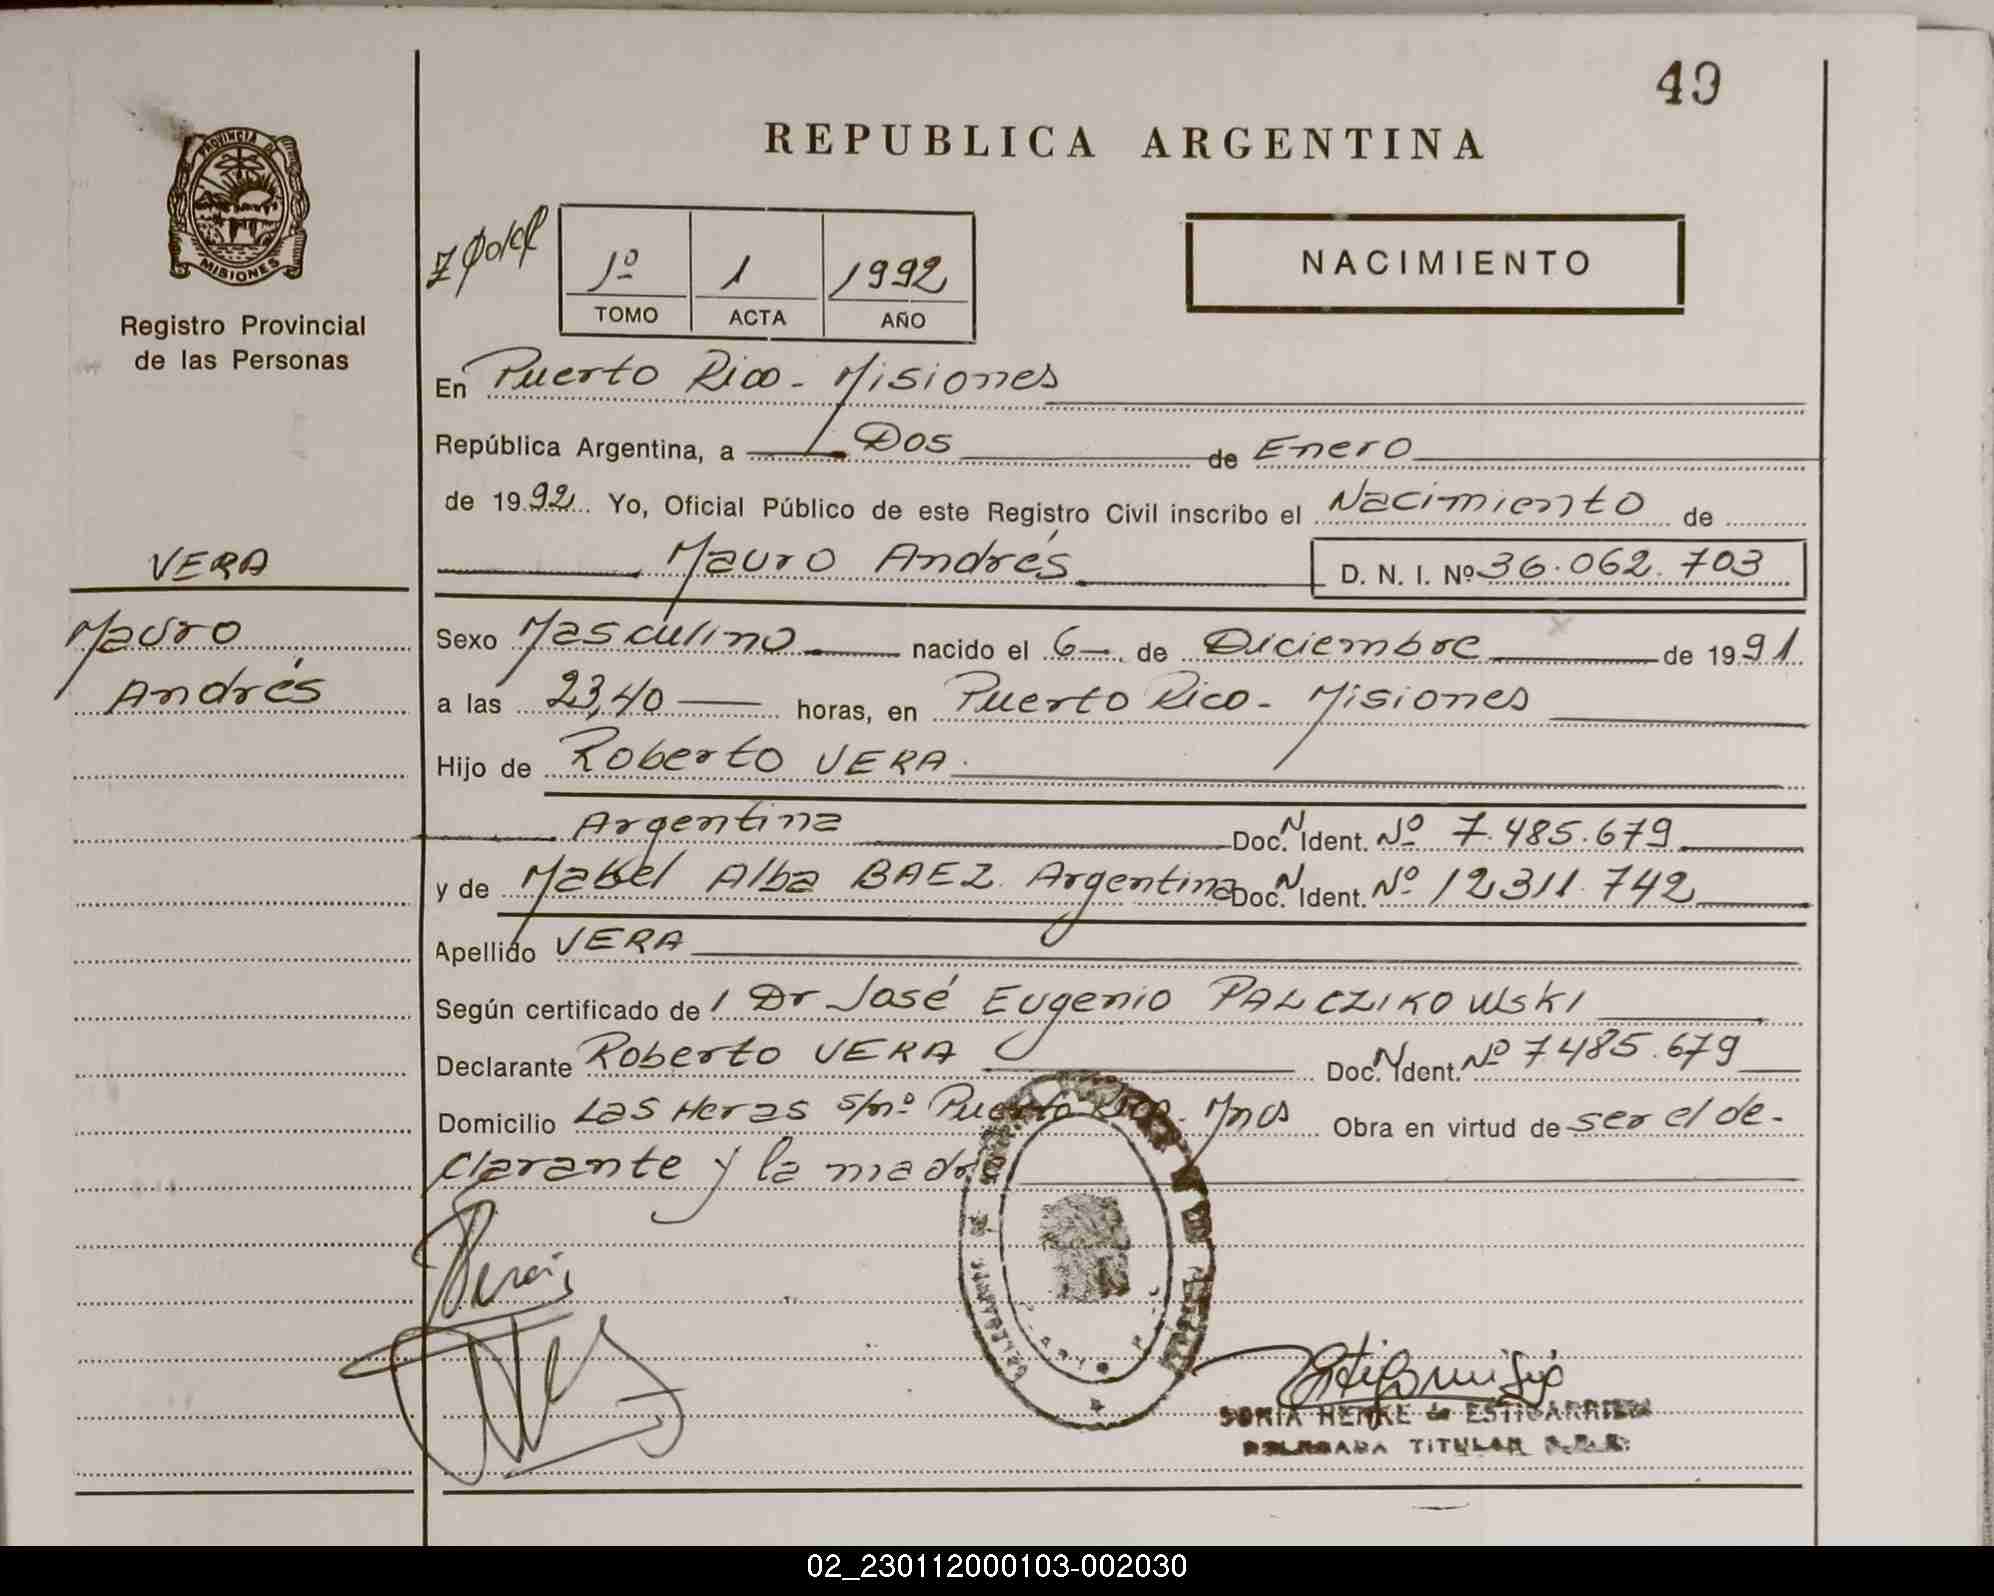 49
REPUBLICA ARGENTINA
PROVINCIA DE
MISIONES
Registro Provincial
de las Personas
1º 1 1992
TOMO ACTA AÑO
NACIMIENTO
En Puerto Rico - Misiones
República Argentina, a Dos de Enero
de 1992 Yo, Oficial Público de este Registro Civil inscribo el Nacimiento de
VERA
Mauro Andrés D. N. I. Nº 36.062.703
Mauro
Andrés
Sexo Masculino nacido el 6 de Diciembre de 1991
a las 23,40 horas, en Puerto Rico - Misiones
Hijo de Roberto VERA
Argentina Doc. N Ident. Nº 7.485.679
y de Mabel Alba BAEZ Argentina Doc. N Ident. Nº 12.311.742
Apellido VERA
Según certificado de l Dr José Eugenio PALCZIKOWSKI
Declarante Roberto VERA Doc. N Ident. Nº 7485.679
Domicilio Las Heras s/nº Puerto Rico - Mnes Obra en virtud de ser el de-
clarante y la madre
SONIA HENKE de ESTIGARRIBIA
DELEGADA TITULAR
02_230112000103-002030